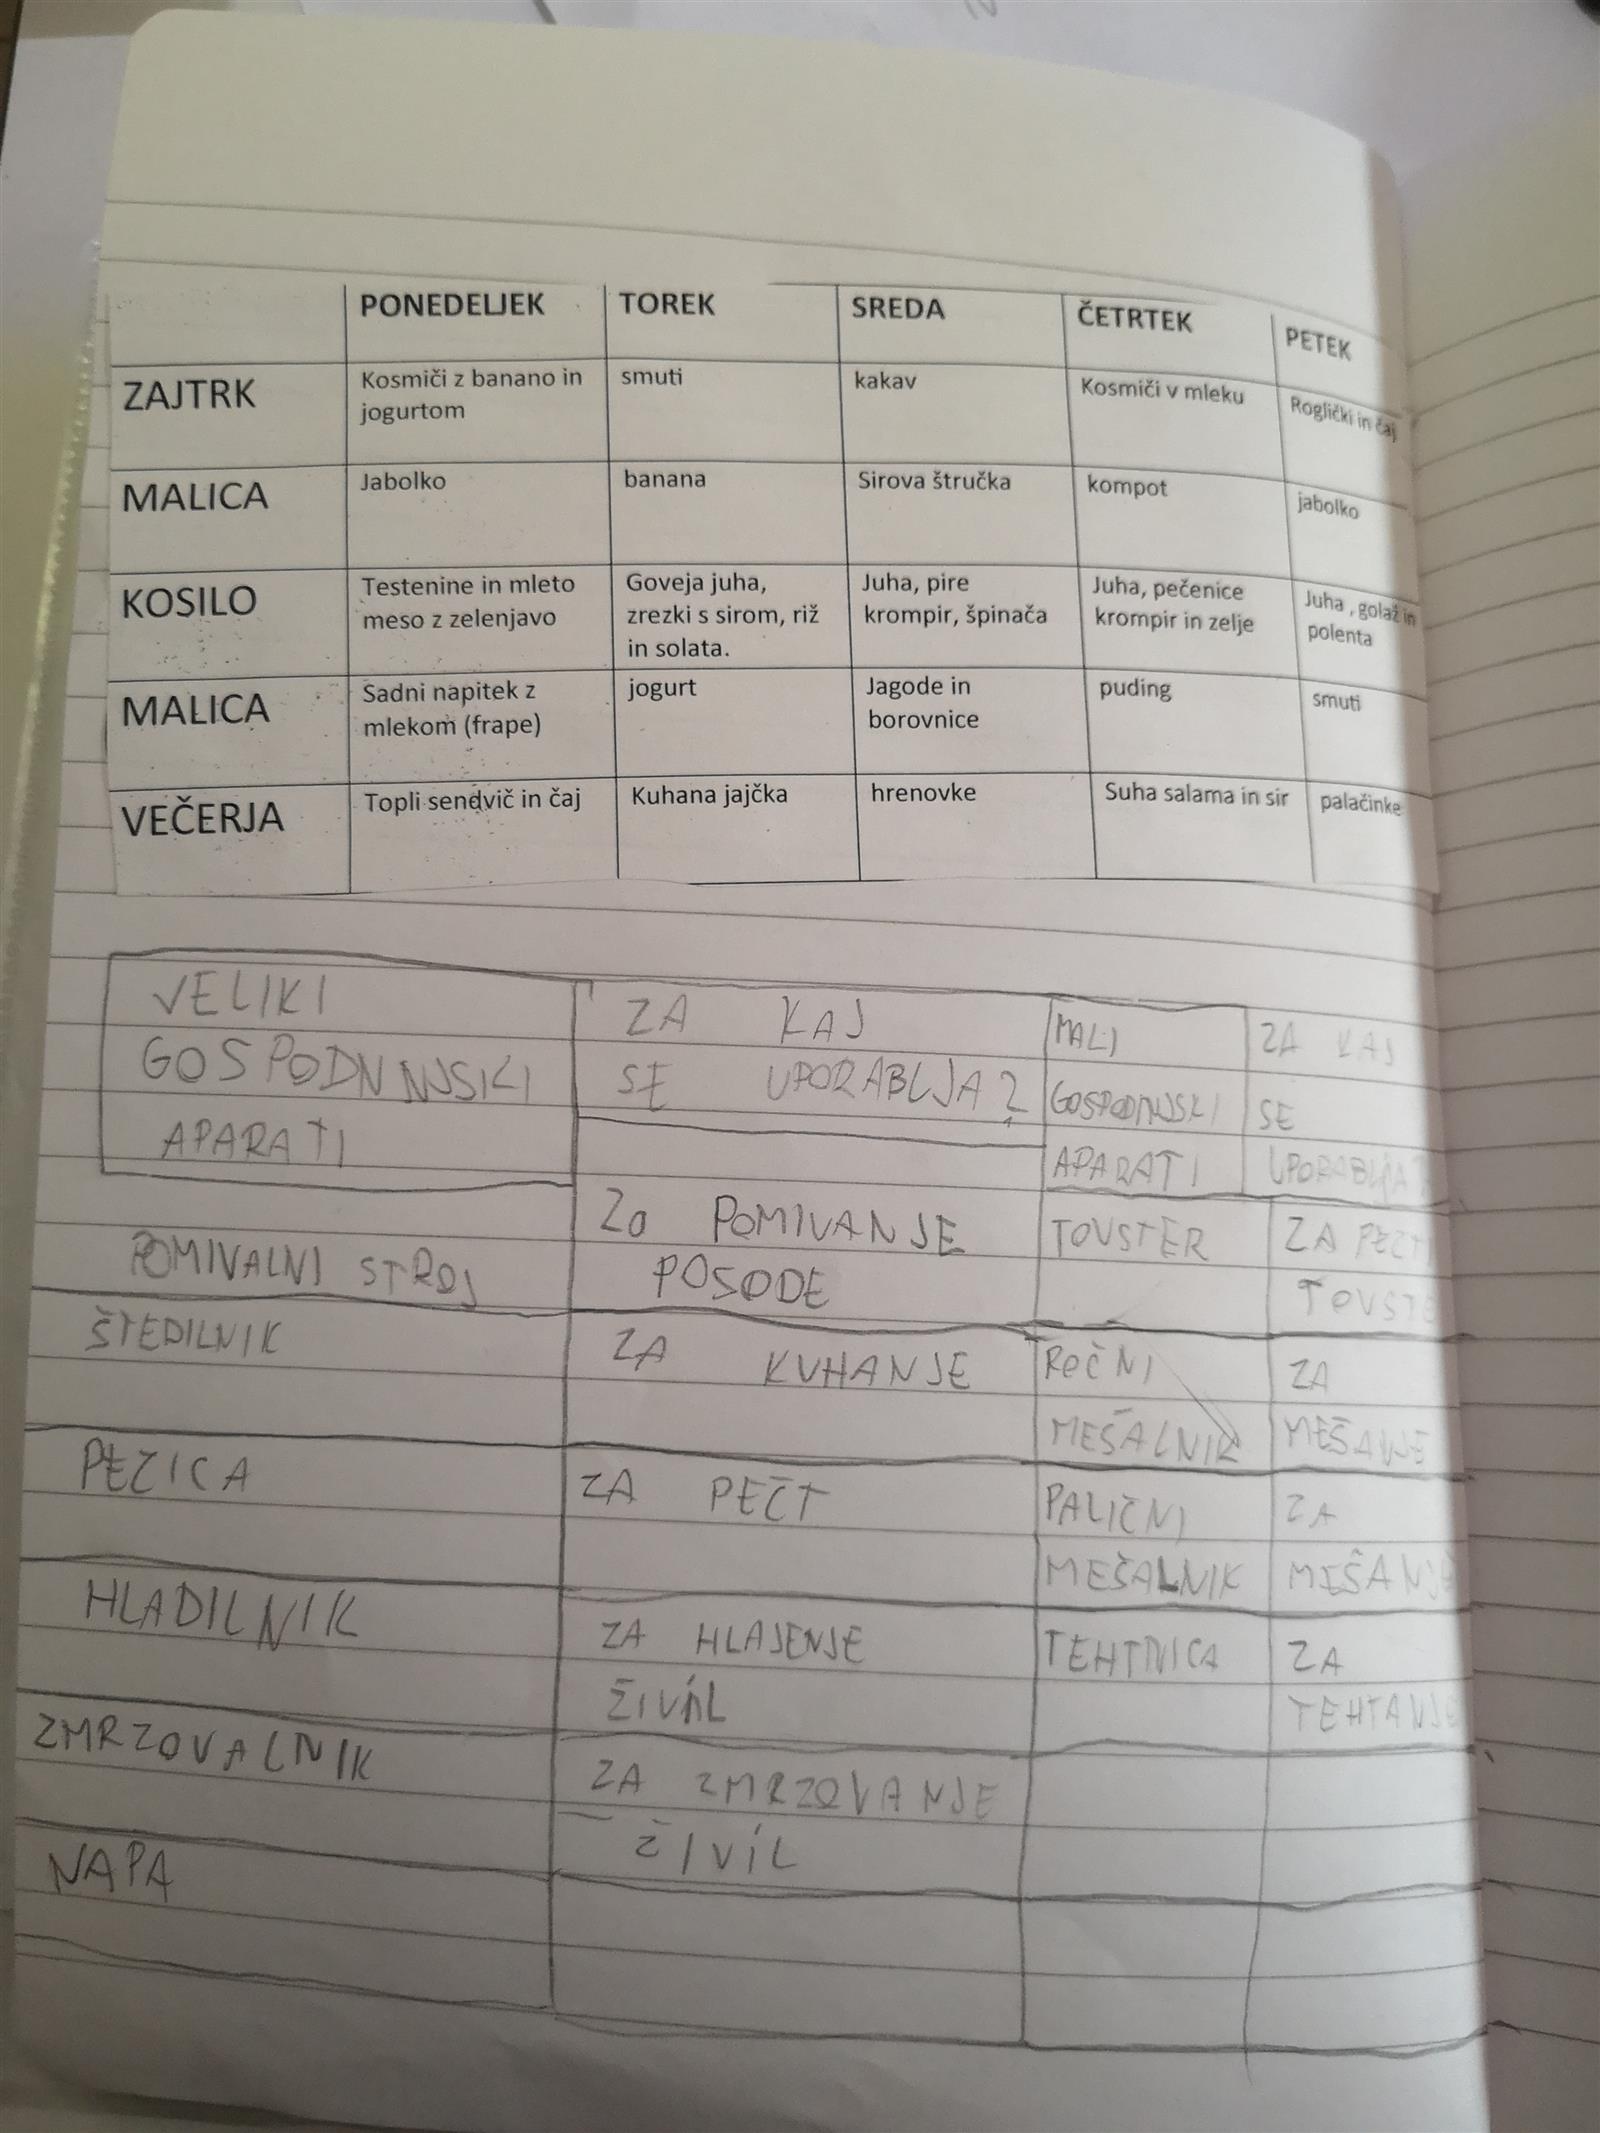 PONEDELJEK TOREK SREDA ČETRTEK PETEK
ZAJTRK
Kosmiči z banano in
jogurtom
smuti
kakav
Kosmiči v mleku
Roglički in čaj
MALICA
Jabolko
banana
Sirova štručka
kompot
jabolko
KOSILO
Testenine in mleto
meso z zelenjavo
Goveja juha,
zrezki s sirom, riž
in solata.
Juha, pire
krompir, špinača
Juha, pečenice
krompir in zelje
Juha , golaž in
polenta
MALICA
Sadni napitek z
mlekom (frape)
jogurt
Jagode in
borovnice
puding
smuti
VEČERJA
Topli sendvič in čaj
Kuhana jajčka
hrenovke
Suha salama in sir
palačinke
VELIKI
APARATI
ZA KAJ
SE UPORABLJA?
MALI
APARATI
ZA KAJ
SE
POMIVALNI STROJ
Za POMIVANJE
POSODE
TOVSTER
ZA
ŠTEDILNIK
ZA KUHANJE
ROČNI
MEŠALNIK
ZA
MEŠANJE
PEZICA
ZA PEČT
PALIČNI
MEŠALNIK
ZA
MEŠANJE
HLADILNIK
ZA HLAJENJE
ŽIVIL
TEHTNICA
ZA
TEHTANJE
ZMRZOVALNIK
ZA ZMRZOVANJE
ŽIVIL
NAPA